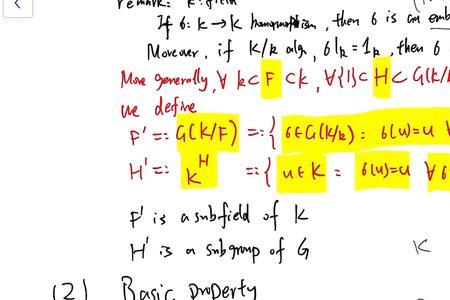 remark: k: field
If σ: K → K homomorphism, then σ is an emb
Moreover, if K/k alg, σ|k = 1k, then σ
More generally, ∀ k ⊂ F ⊂ K, ∀{1} ⊂ H < G(K/k
we define
F' =: G(K/F) =:= { σ∈G(K/k): σ(u)=u ∀
H' =: K^H =:= { u∈K : σ(u)=u ∀σ
F' is a subfield of K
H' is a subgroup of G
K
(2) Basic property